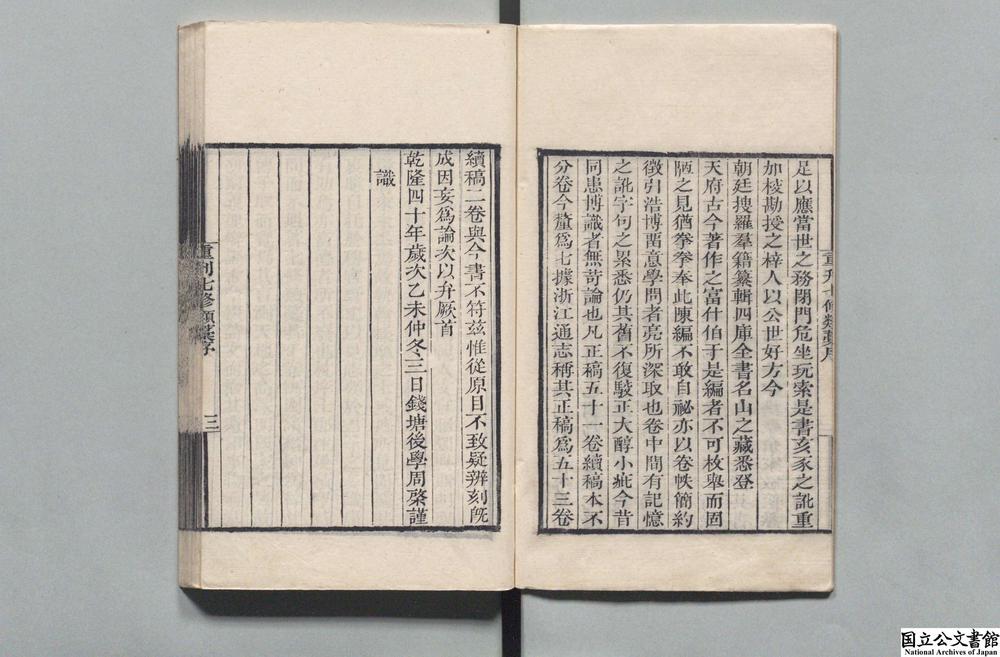 足以應當世之務閉門危坐玩索是書亥豕之訛重
加棱勘授之梓人以公世好方今
朝廷搜羅羣籍纂輯四庫全書名山之藏悉登
天府古今著作之富什伯于是編者不可枚舉而固
陋之見猶拳拳奉此陳編不敢自祕亦以卷帙簡約
徵引浩博畱意學問者亮所深取也卷中間有記憶
之訛字句之累悉仍其舊不復駁正大醇小疵今昔
同患博識者無苛論也凡正稿五十一卷續稿本不
分卷今釐爲七據浙江通志稱其正稿爲五十三卷
續稿二卷與今書不符茲惟從原目不致疑辨刻旣
成因妄爲論次以弁厥首
乾隆四十年歲次乙未仲冬三日錢塘後學周棨謹
識
重刊七修類藁序
三
国立公文書館
National Archives of Japan